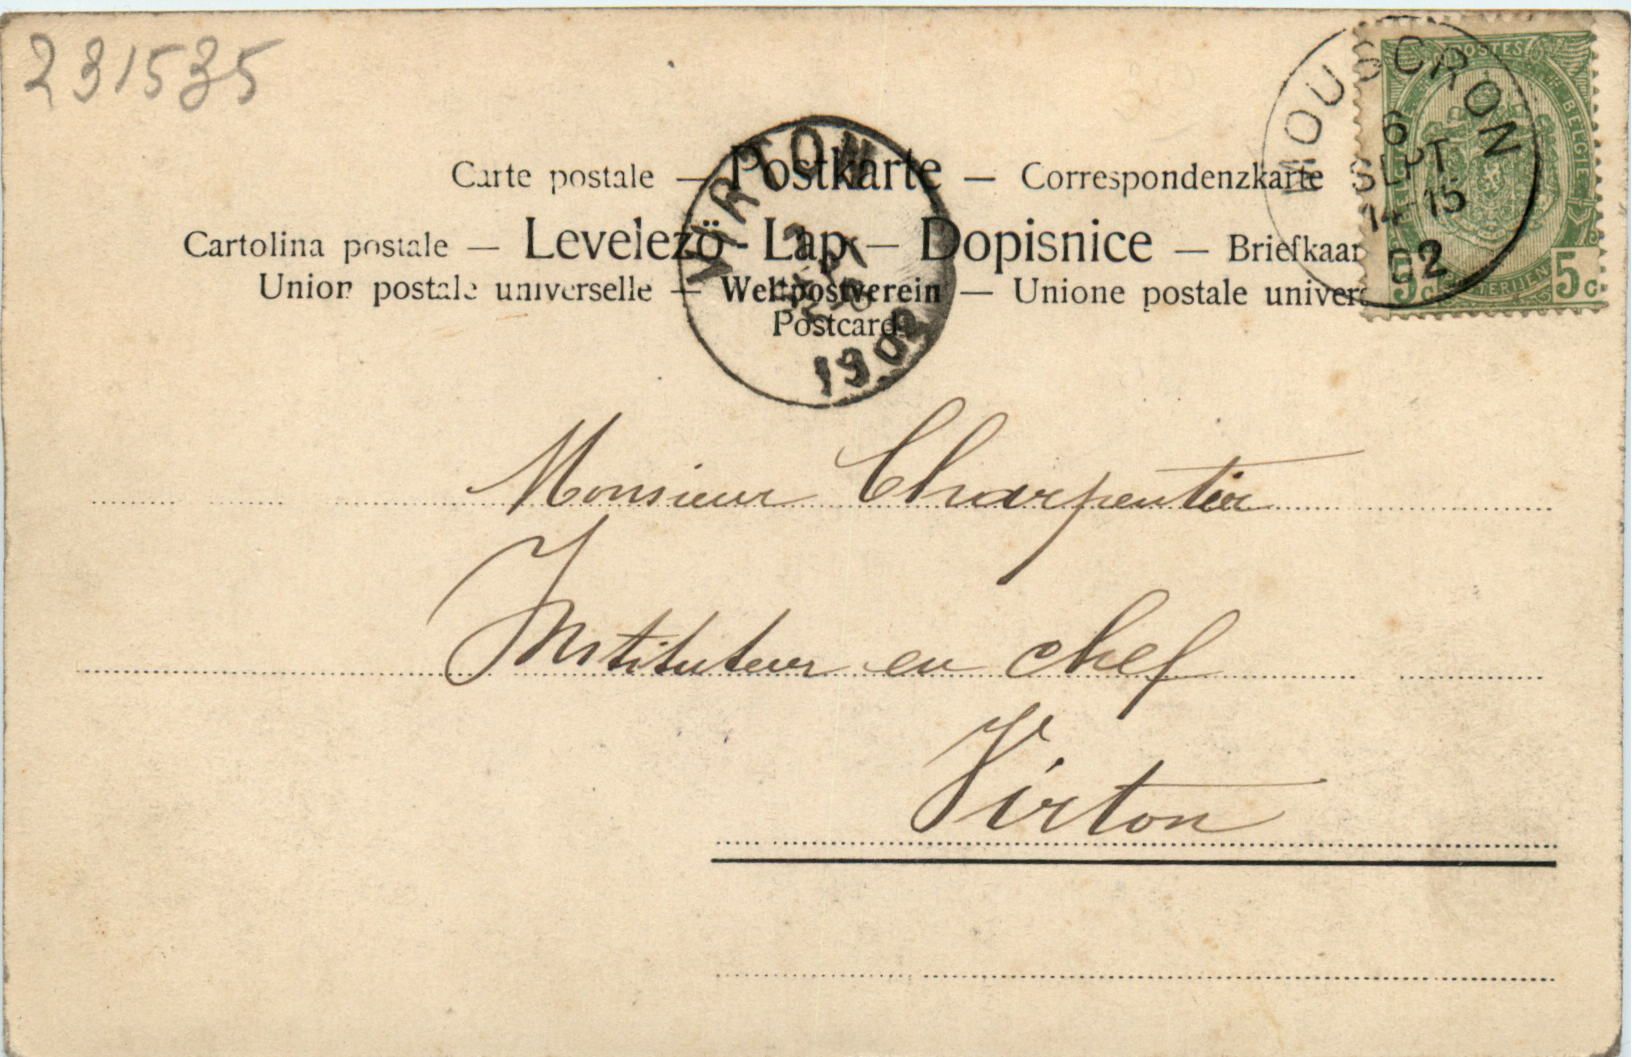 231535
MOUSCRON
6
SEPT.
14-15
02
POSTES BELGIE
5c. 5c.
VIRTON
7
SEPT
1902
Carte postale — Postkarte — Correspondenzkarte
Cartolina postale — Levelezö-Lap — Dopisnice — Briefkaar
Union postale universelle — Weltpostverein — Unione postale univer
Postcard
Monsieur Charpentier
Instituteur en chef
Virton